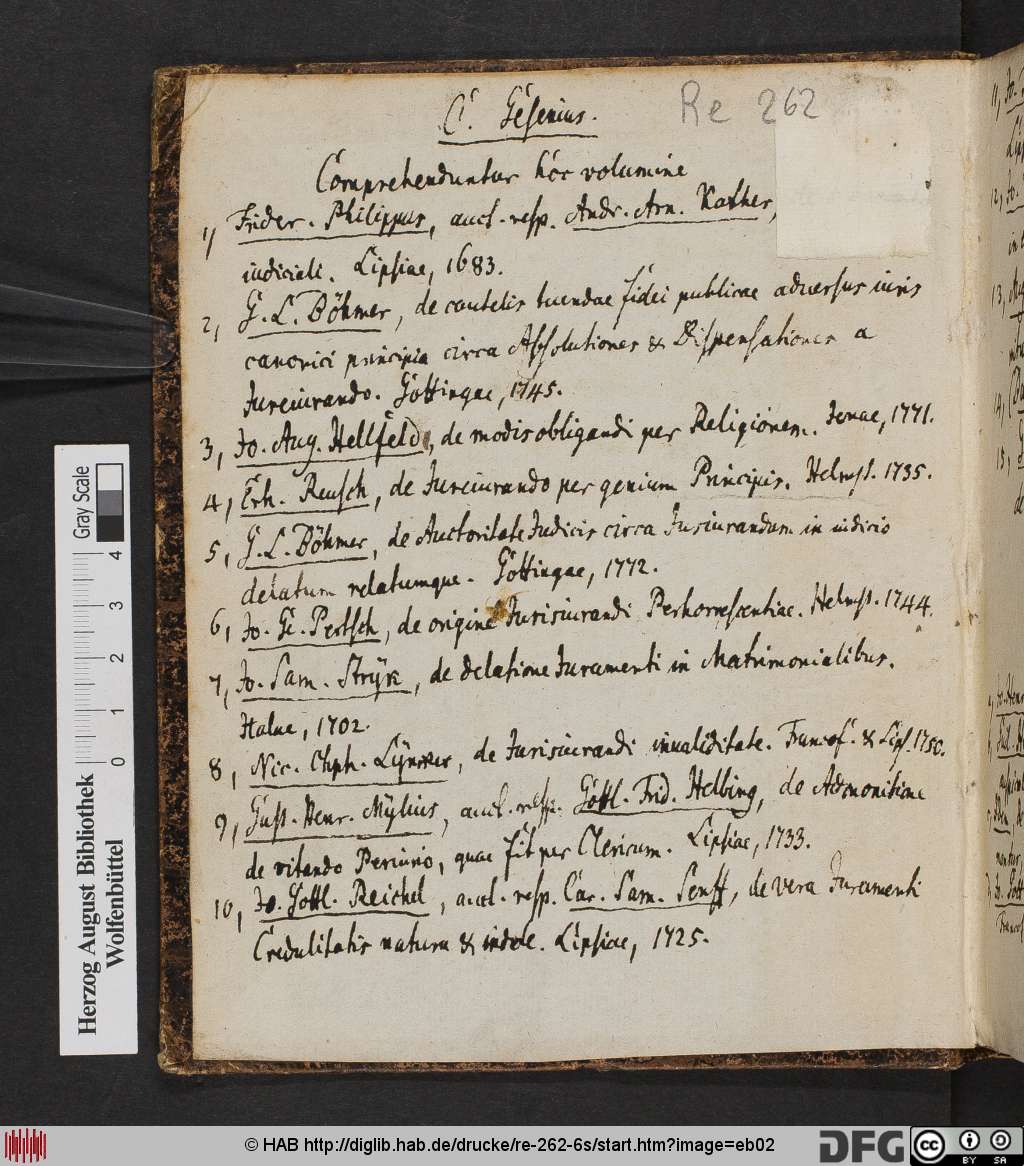 C. Gesenius.
Re 262
Comprehenduntur hoc volumine
1, Frider. Philippus, auct. resp. Andr. Arn. Kather,
iudiciali. Lipsiae, 1683.
2, G. L. Böhmer, de cautelis tuendae fidei publicae adversus iuris
canonici principia circa Absolutiones & Dispensationes a
Jureiurando. Göttingae, 1745.
3, Jo. Aug. Hellfeld, de modis obligandi per Religionem. Jenae, 1771.
4, Erh. Reusch, de Jureiurando per genium Principis. Helmst. 1735.
5, G. L. Böhmer, de Auctoritate Judicis circa Jusiurandum in iudicio
delatum relatumque. Göttingae, 1772.
6, Jo. G. Pertsch, de origine Jurisiurandi Perhorrescentiae. Helmst. 1744.
7, Jo. Sam. Stryk, de delatione Juramenti in Matrimonialibus.
Halae, 1702.
8, Nic. Chph. Lÿncker, de Jurisiurandi invaliditate. Francof. & Lips. 1750.
9, Gust. Henr. Mÿlius, auct. resp. Gottl. Frid. Helbing, de Admonitione
de vitando Periurio, quae fit per Clericum. Lipsiae, 1733.
10, Jo. Gottl. Reichel, auct. resp. Car. Sam. Senff, de vera Juramenti
Credulitatis natura & indole. Lipsiae, 1725.
Herzog August Bibliothek
Wolfenbüttel
Gray Scale
0 1 2 3 4
© HAB http://diglib.hab.de/drucke/re-262-6s/start.htm?image=eb02
DFG
cc BY SA